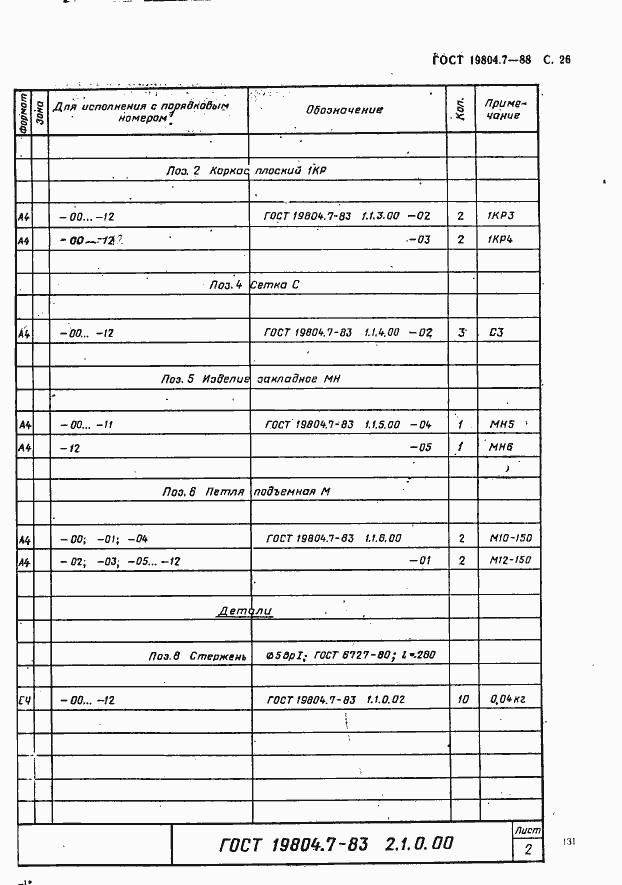 ГОСТ 19804.7—88 С. 26
Формат Зона Для исполнения с порядковым номером Обозначение Кол. Примечание
Поз. 2 Каркас плоский 1КР
А4 -00... -12 ГОСТ 19804.7-83 1.1.3.00 -02 2 1КР3
А4 -00...-12 -03 2 1КР4
Поз. 4 Сетка С
А4 -00... -12 ГОСТ 19804.7-83 1.1.4.00 -02 3 С3
Поз. 5 Изделие закладное МН
А4 -00... -11 ГОСТ 19804.7-83 1.1.5.00 -04 1 МН5
А4 -12 -05 1 МН6
Поз. 6 Петля подъемная М
А4 -00; -01; -04 ГОСТ 19804.7-83 1.1.6.00 2 М10-150
А4 -02; -03; -05... -12 -01 2 М12-150
Детали
Поз. 8 Стержень Ø5ВрI; ГОСТ 6727-80; l=280
СЧ -00... -12 ГОСТ 19804.7-83 1.1.0.02 10 0,04кг
ГОСТ 19804.7-83 2.1.0.00 Лист
2
131